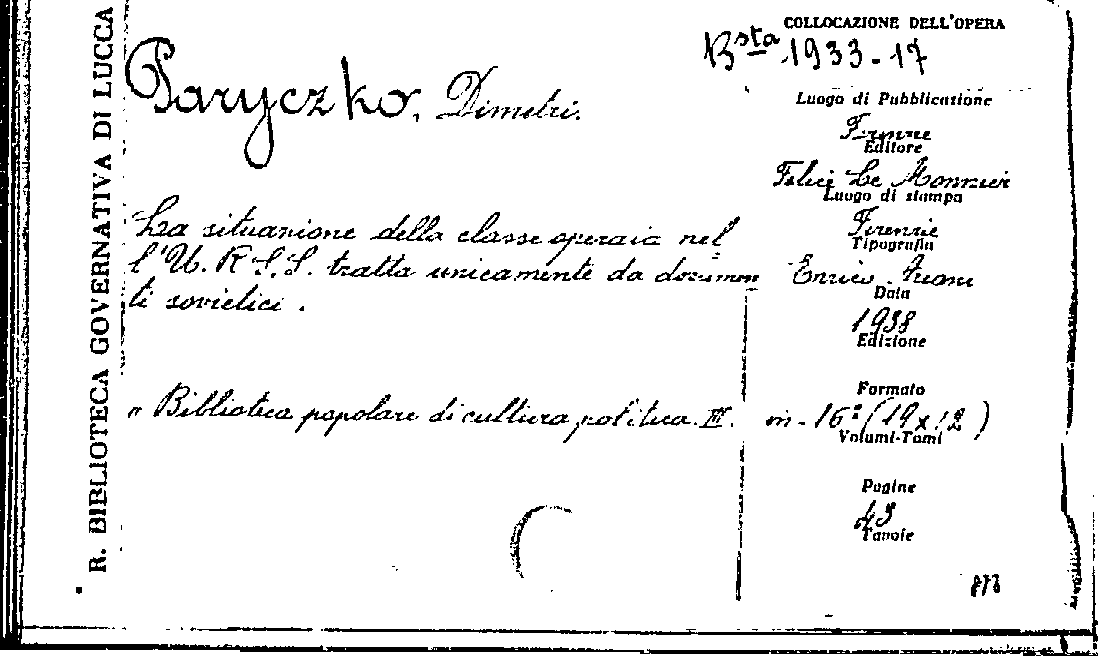 R. BIBLIOTECA GOVERNATIVA DI LUCCA
COLLOCAZIONE DELL'OPERA
Bsta 1933-17
Paryczko, Dimitri.
La situazione della classe operaia nel
l'U.R.S.S. tratta unicamente da documen
ti sovietici.
" Biblioteca popolare di cultura politica. III.
Luogo di Pubblicazione
Firenze
Editore
Felice Le Monnier
Luogo di stampa
Firenze
Tipografia
Enrico Ariani
Data
1938
Edizione
Formato
in-16° (19x12)
Volumi-Tomi
Pagine
43
Tavole